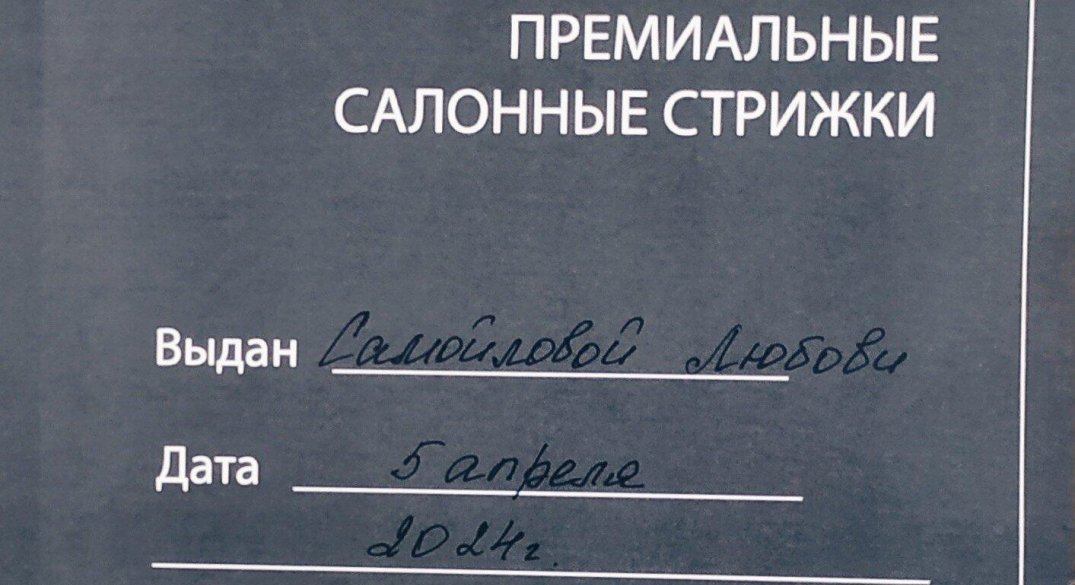 ПРЕМИАЛЬНЫЕ
САЛОННЫЕ СТРИЖКИ
Выдан Самойловой Любови
Дата 5 апреля
2024г.